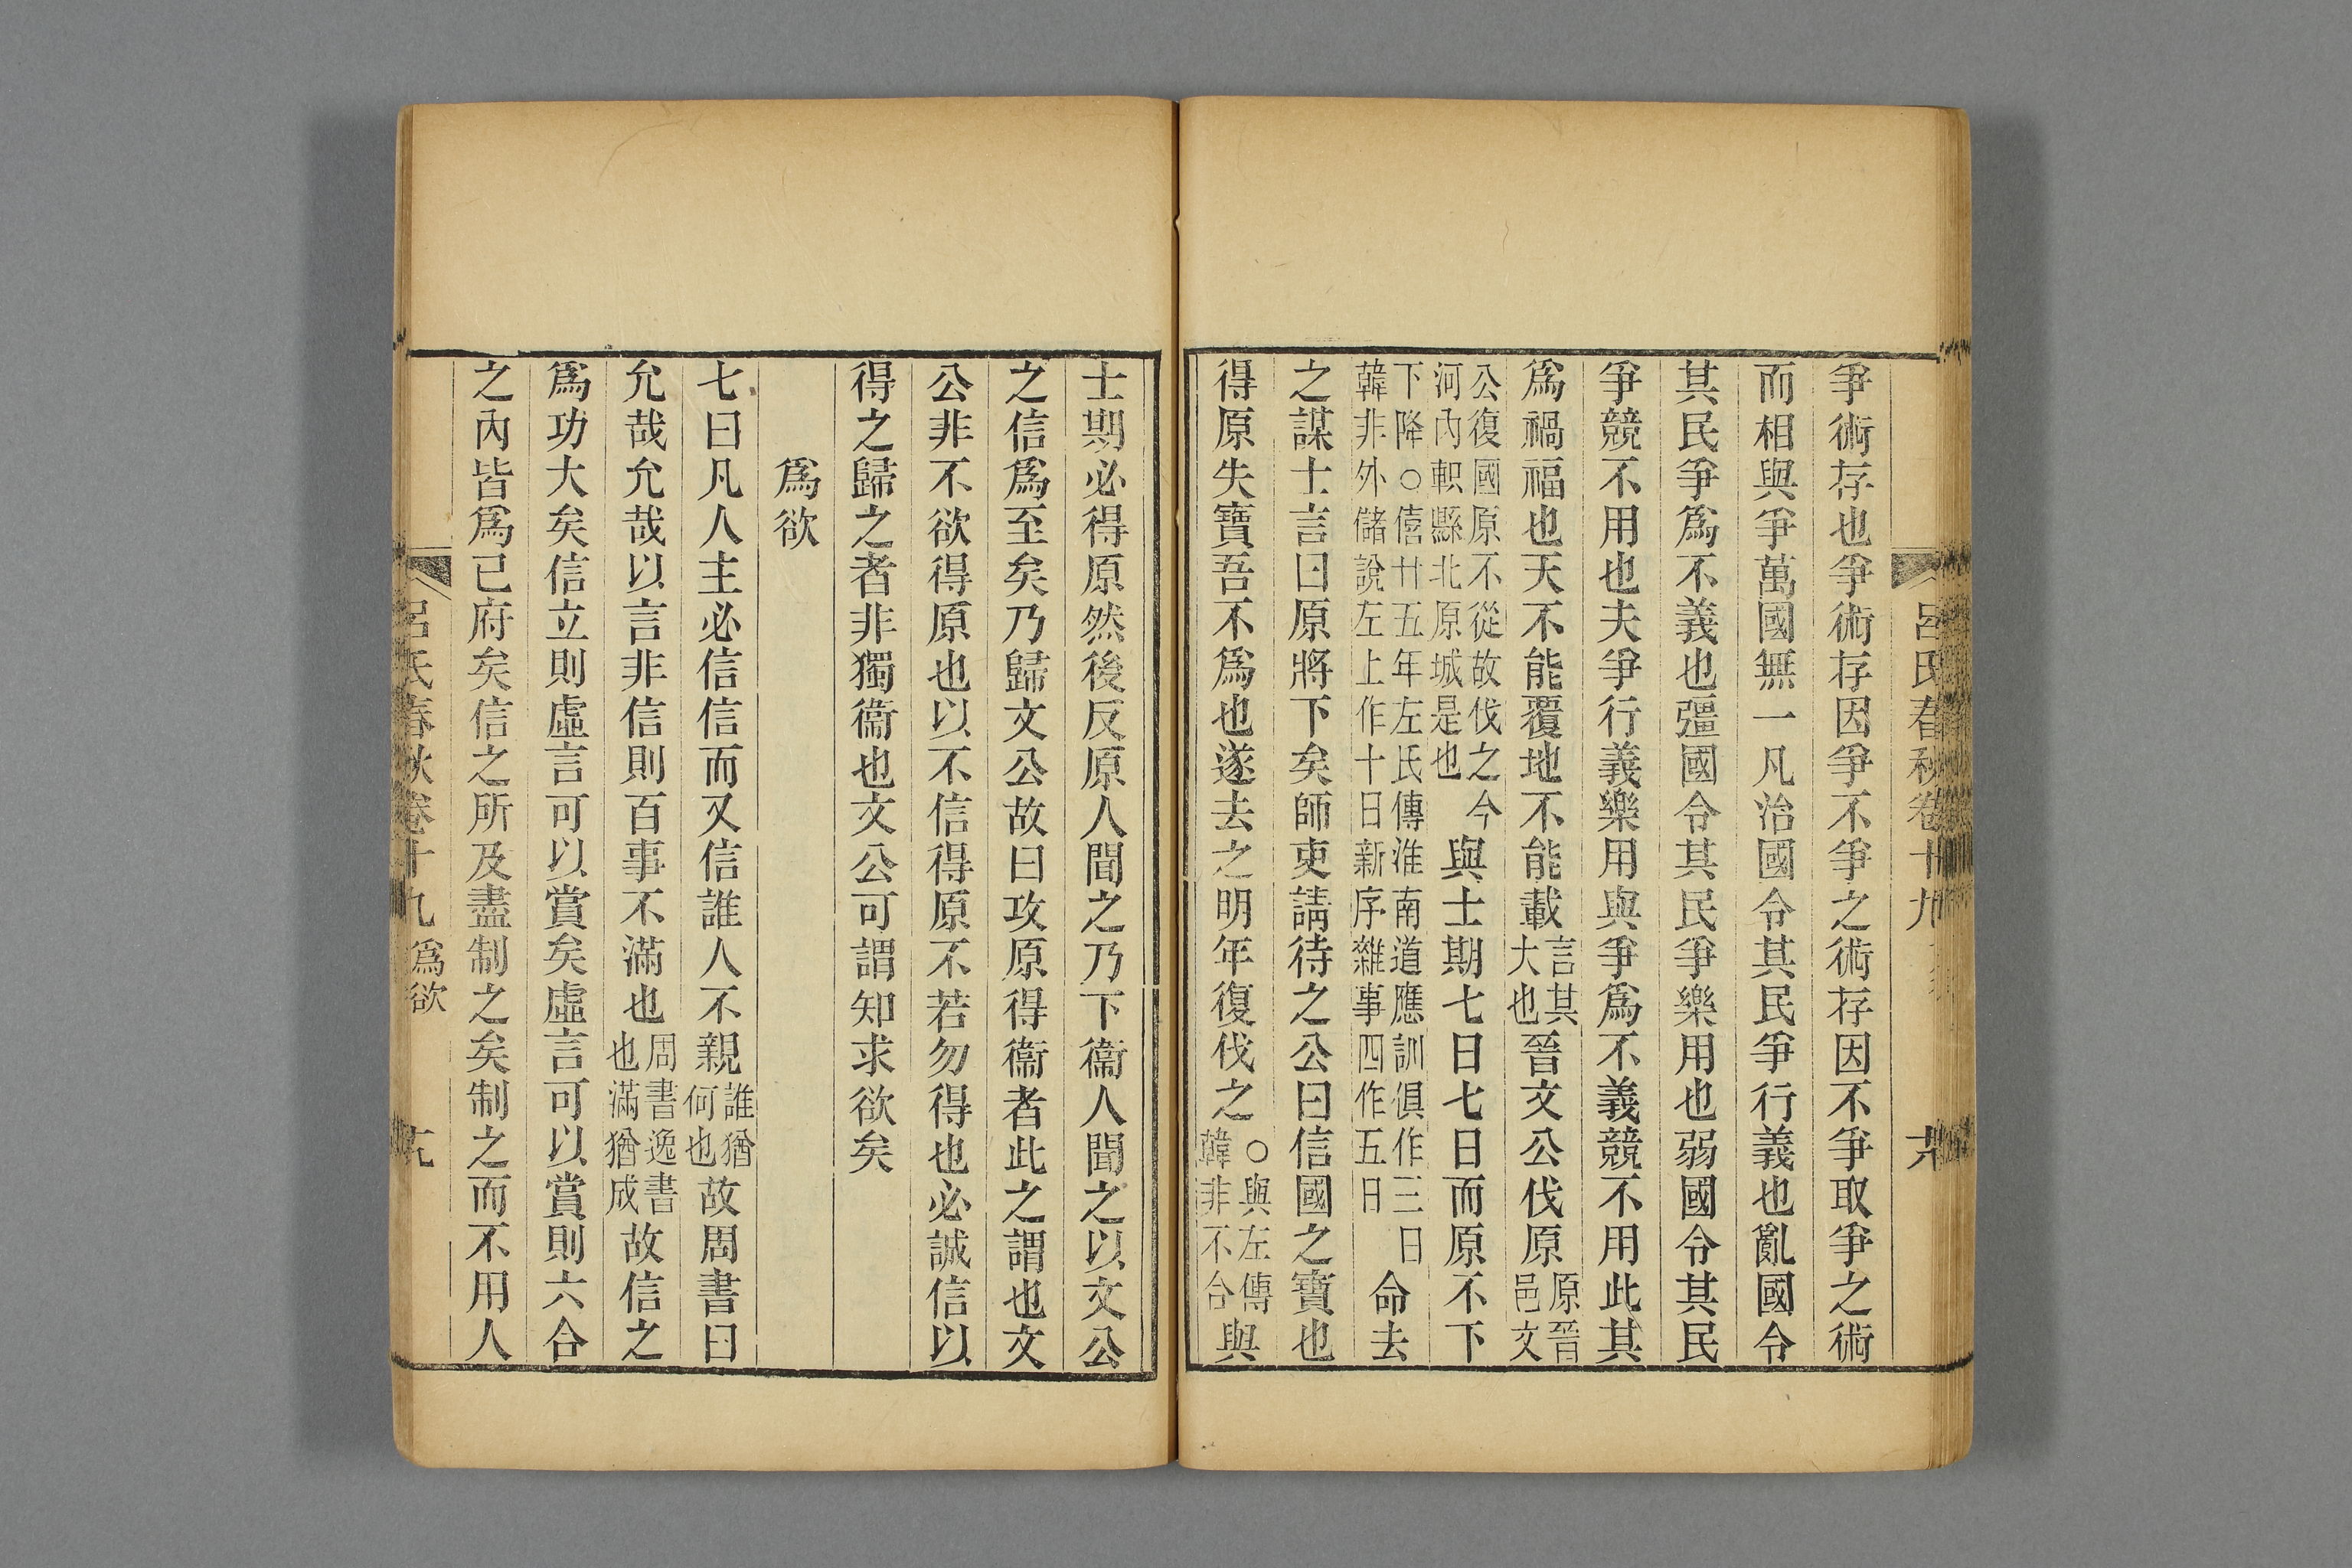 呂氏春秋卷十九
爭術存也爭術存因爭不爭之術存因不爭取爭之術
而相與爭萬國無一凡治國令其民爭行義也亂國令
其民爭爲不義也彊國令其民爭樂用也弱國令其民
爭競不用也夫爭行義樂用與爭爲不義競不用此其
爲禍福也天不能覆地不能載言其大也晉文公伐原原晉邑文
公復國原不從故伐之今河內軹縣北原城是也與士期七日七日而原不下
下降○僖廿五年左氏傳淮南道應訓俱作三日韓非外儲說左上作十日新序雜事四作五日命去
之謀士言曰原將下矣師吏請待之公曰信國之寶也
得原失寶吾不爲也遂去之明年復伐之○與左傳韓非不合與
士期必得原然後反原人聞之乃下衞人聞之以文公
之信爲至矣乃歸文公故曰攻原得衞者此之謂也文
公非不欲得原也以不信得原不若勿得也必誠信以
得之歸之者非獨衞也文公可謂知求欲矣
爲欲
七曰凡人主必信信而又信誰人不親誰猶何也故周書曰
允哉允哉以言非信則百事不滿也周書逸書也滿猶成故信之
爲功大矣信立則虛言可以賞矣虛言可以賞則六合
之內皆爲己府矣信之所及盡制之矣制之而不用人
呂氏春秋卷十九 爲欲